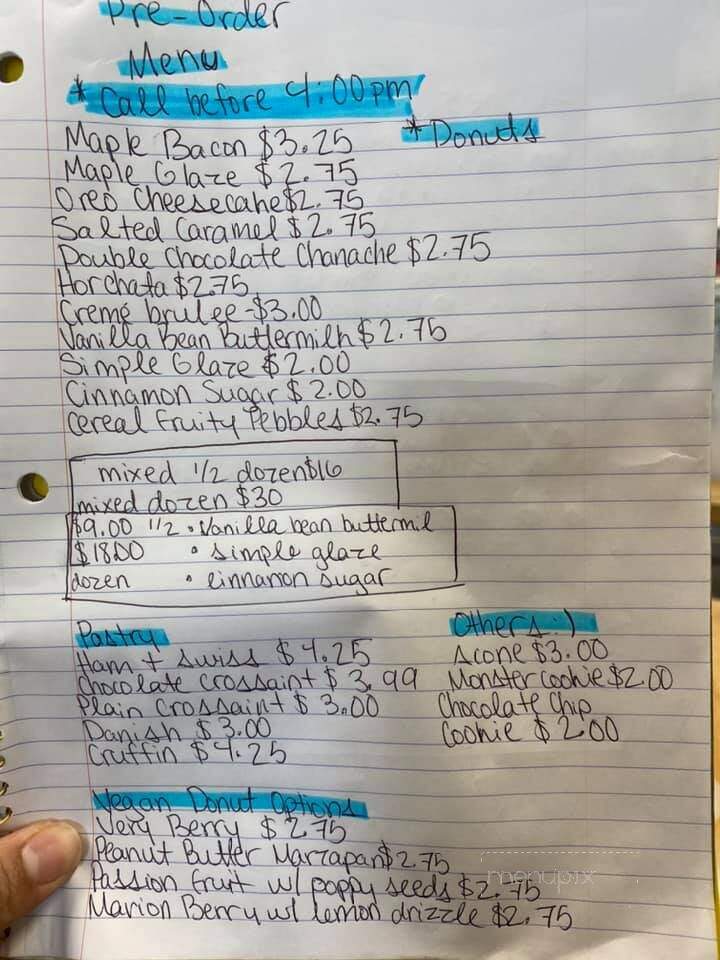 Pre-Order
Menu
* Call before 4:00pm
* Donuts
Maple Bacon $3.25
Maple Glaze $2.75
Oreo Cheesecake $2.75
Salted Caramel $2.75
Double Chocolate Chanache $2.75
Horchata $2.75
Creme brulee -$3.00
Vanilla Bean Buttermilk $2.75
Simple Glaze $2.00
Cinnamon Sugar $2.00
Cereal Fruity Pebbles $2.75
mixed 1/2 dozen $16
mixed dozen $30
$9.00 1/2 • Vanilla bean buttermil
$18.00 • simple glaze
dozen • cinnanon sugar
Pastry
Ham + swiss $4.25
Chocolate crossaint $3.99
Plain Crossaint $3.00
Danish $3.00
Cruffin $4.25
Others :)
Scone $3.00
Monster Cookie $2.00
Chocolate Chip
Cookie $2.00
Vegan Donut Options
Very Berry $2.75
Peanut Butter Marzapan $2.75
Passion fruit w/ poppy seeds $2.75
Marion Berry w/ lemon drizzle $2.75
menupix